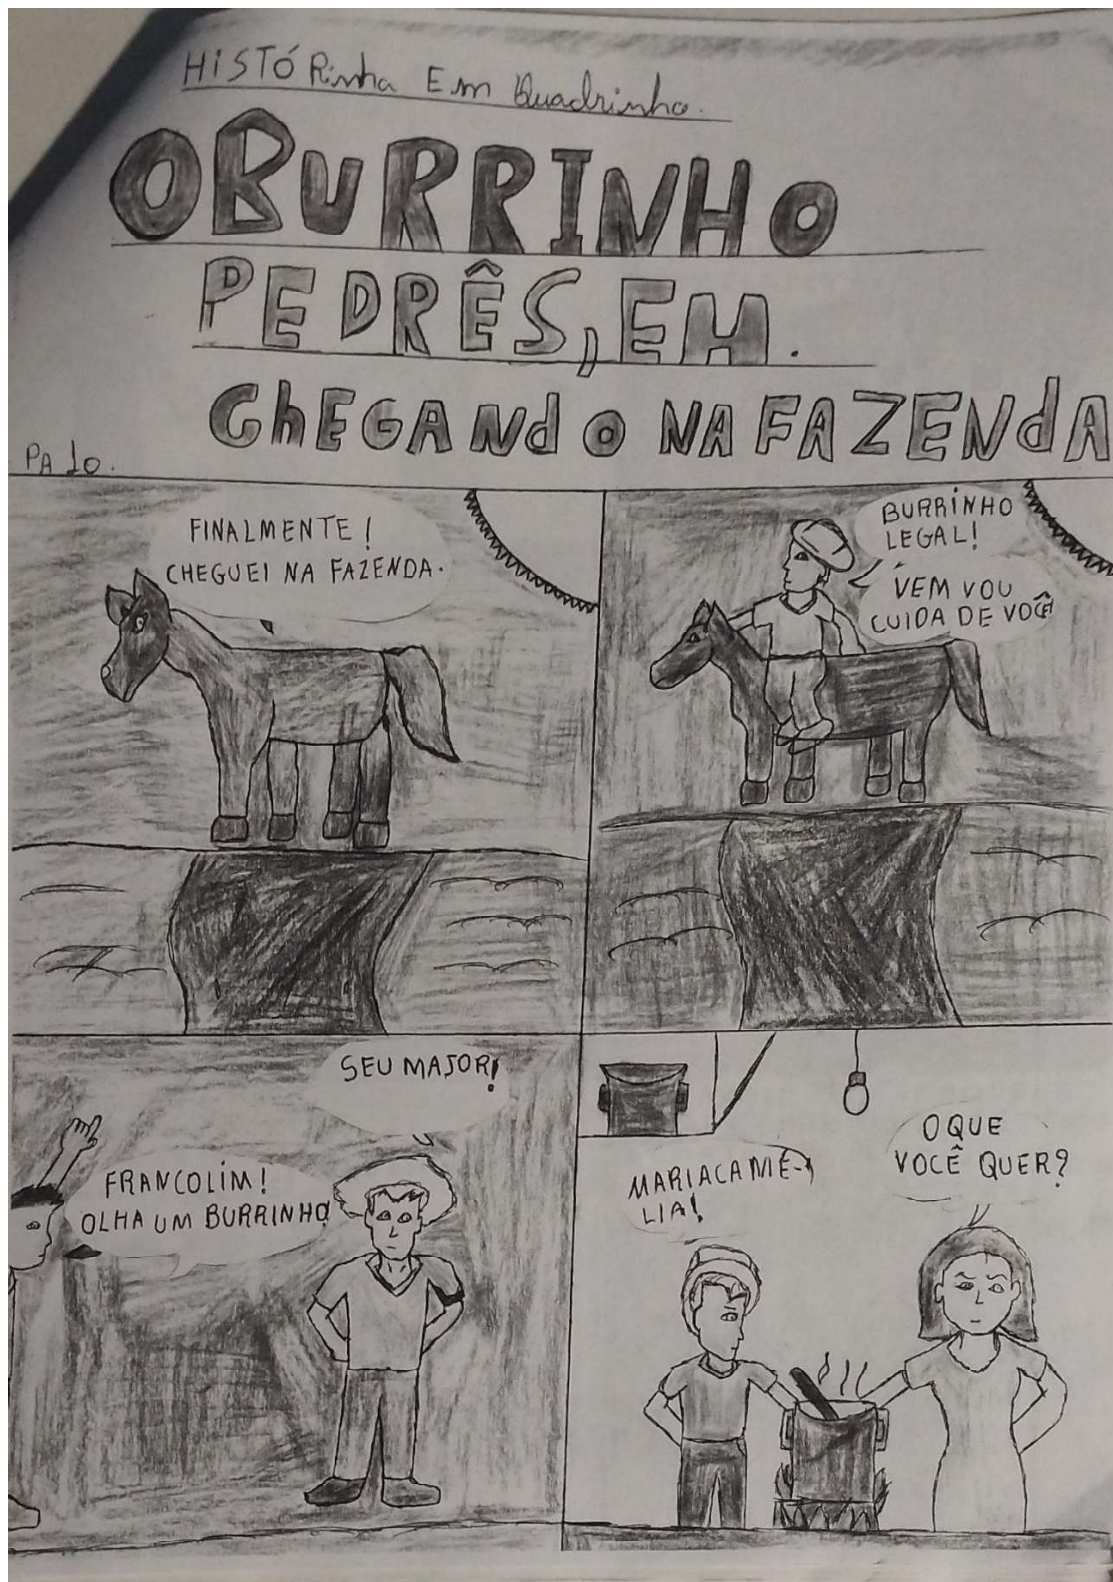 HISTÓRinha Em Quadrinho.
OBURRINHO
PEDRÊS, EM.
ChEGANdO NA FAZENdA
PA 10.
FINALMENTE!
CHEGUEI NA FAZENDA.
BURRINHO
LEGAL!
VEM VOU
CUIDA DE VOCÊ
SEU MAJOR!
FRANCOLIM!
OLHA UM BURRINHO
MARIACAMÉ-
LIA!
O QUE
VOCÊ QUER?